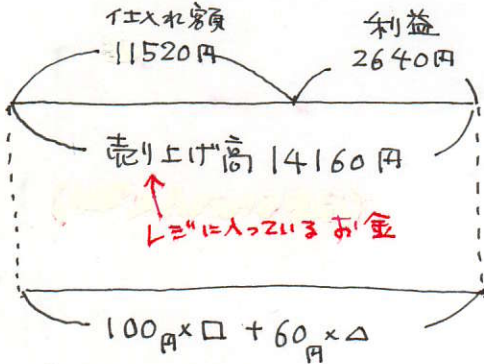 仕入れ額
11520円
利益
2640円
売り上げ高 14160円
レジに入っているお金
100円×□ + 60円×△